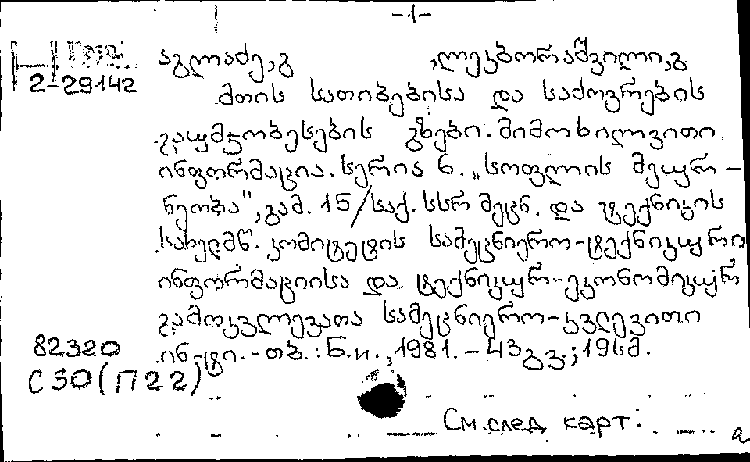 -1-
აგლაძე, გ ,ლეკბორაშვილი, გ
2-29142
მთის სათიბებისა და საძოვრების
გაუმჯობესების გზები. მიმოხილვითი
ინფორმაცია. სერია 6. „სოფლის მეურ-
ნეობა", გამ. 15/საქ. სსრ მეცნ. და ტექნიკის
სახელმწ. კომიტეტის სამეცნიერო-ტექნიკური
ინფორმაციისა და ტექნიკურ-ეკონომიკურ
გამოკვლევათა სამეცნიერო-კვლევითი
82320
ინ-ტი. -თბ.: Б.и., 1981. - 43 გვ.; 19სმ.
С30(П22)
См.след карт: